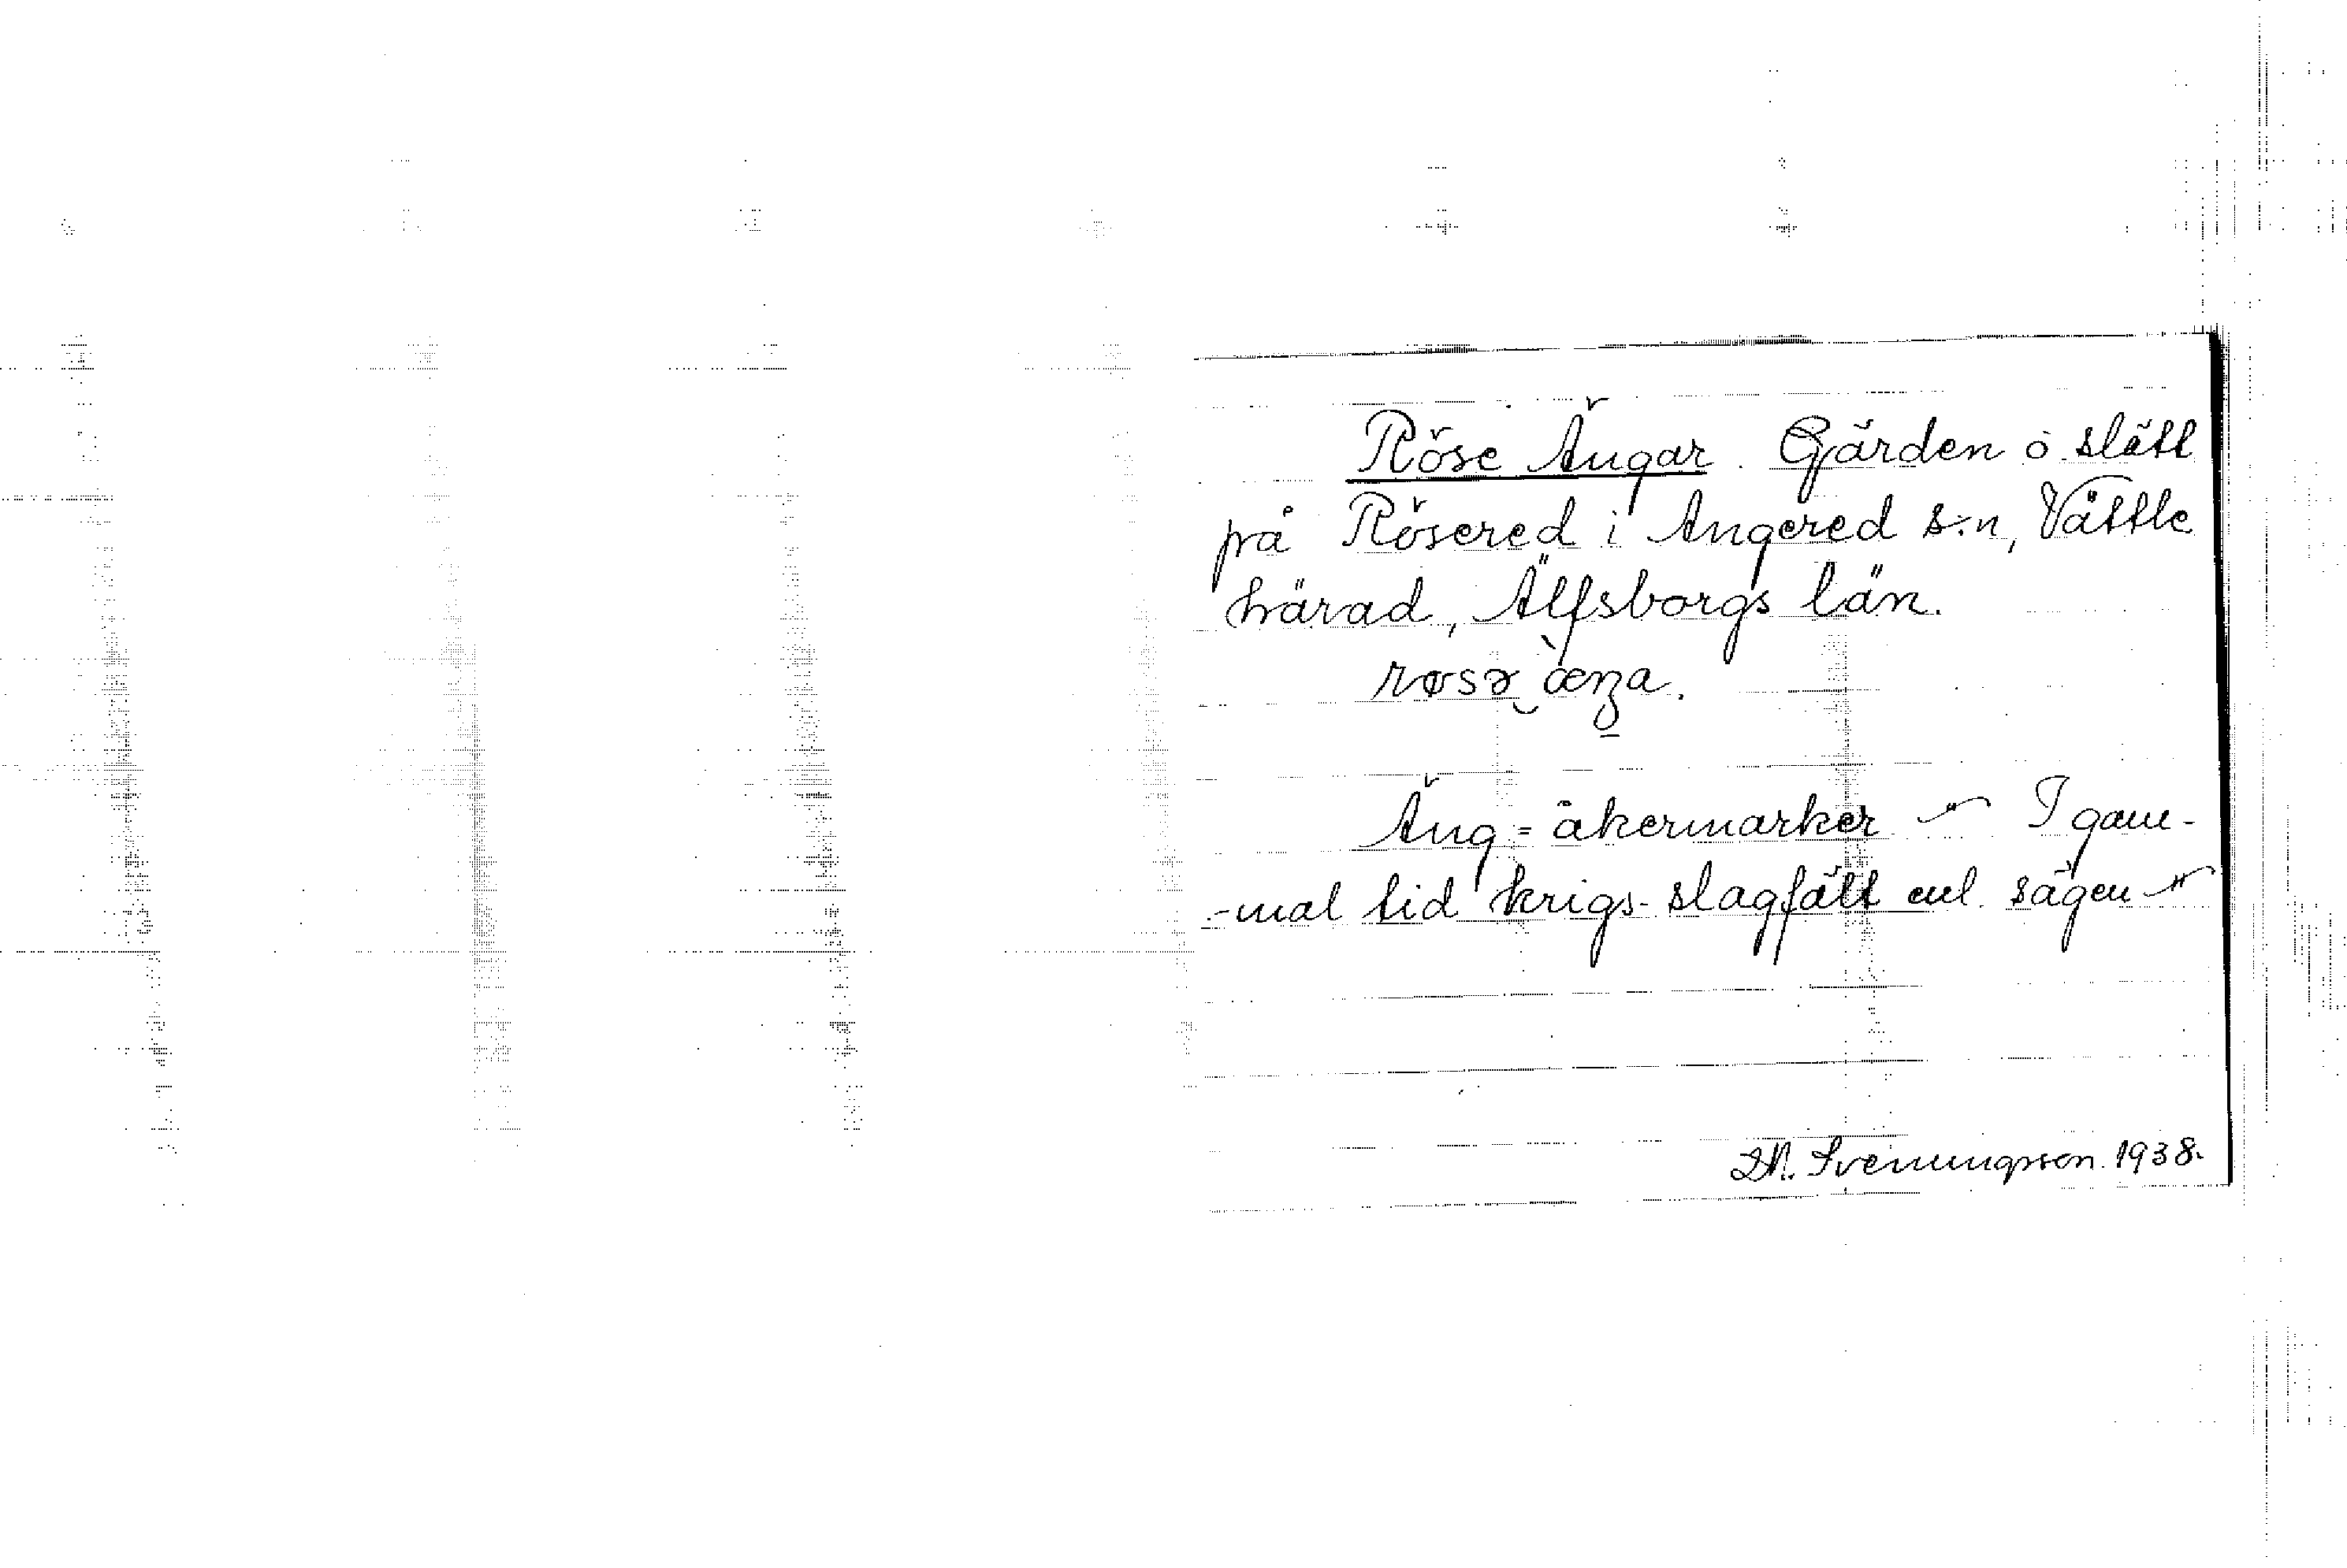 Röse Ängar. Gärden o slätt
på Rösered i Angered s:n, Vättle
härad, Älfsborgs län.
røsə æŋa.
Äng = åkermarker - " - I gam-
-mal tid krigs-slagfält enl. sägen - " -
1938.